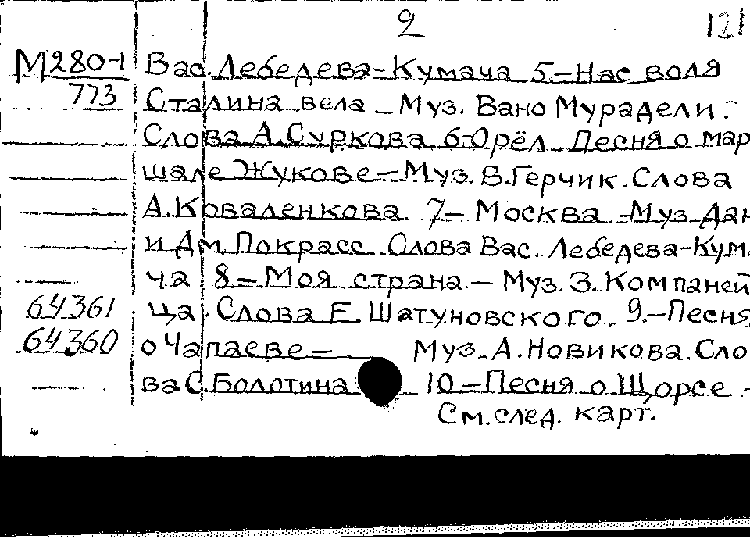 2 121
М280-1 Вас. Лебедева-Кумача 5-Нас воля
773 Сталина вела - Муз. Вано Мурадели.
Слова А.Суркова 6-Орёл. Песня о мар
шале Жукове-Муз. В.Герчик. Слова
А.Коваленкова 7- Москва - Муз Дан
и Дм. Покрасс Слова Вас. Лебедева-Кум
ча 8-Моя страна - Муз. З.Компаней
64361 ца. Слова Е. Шатуновского. 9.-Песня
64360 о Чапаеве - Муз. А.Новикова. Сло
ва С.Болотина 10-Песня о Щорсе -
См. след. карт.